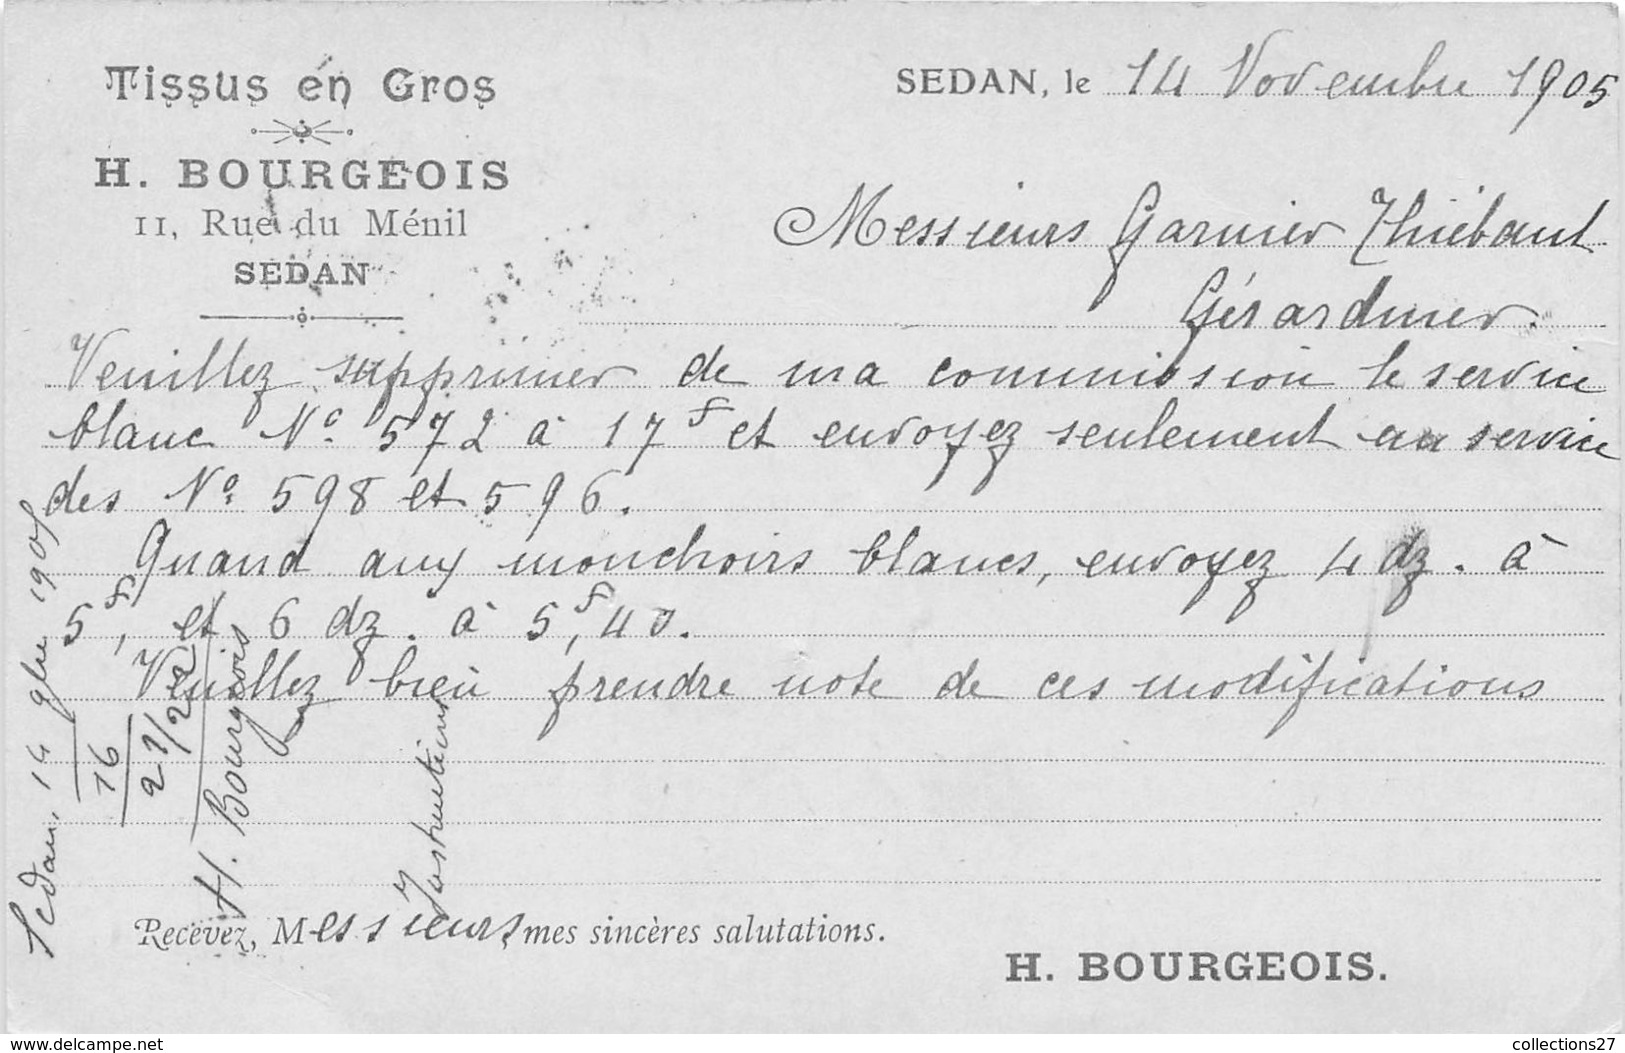 Tissus en Gros
H. BOURGEOIS
11, Rue du Ménil
SEDAN
SEDAN, le 14 Novembre 1905
Messieurs Garnier Thiébaut
Gérardmer.
Veuillez supprimer de ma commission le service
blanc No. 572 à 17f et envoyez seulement au service
des No. 598 et 596.
Quand aux mouchoirs blancs, envoyez 4 dz. à
5f, et 6 dz. à 5f,40.
Veuillez bien prendre note de ces modifications
Recevez, Messieurs, mes sincères salutations.
H. BOURGEOIS.
Sedan, 14 9bre 1905
16
H. Bourgeois
Instructions
www.delcampe.net
collections27